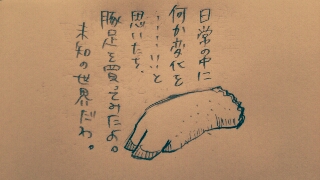 日常の中に
何か変化を
・・・・・・・と
思いたち、
豚足を買ってみたよ。
未知の世界だわ。